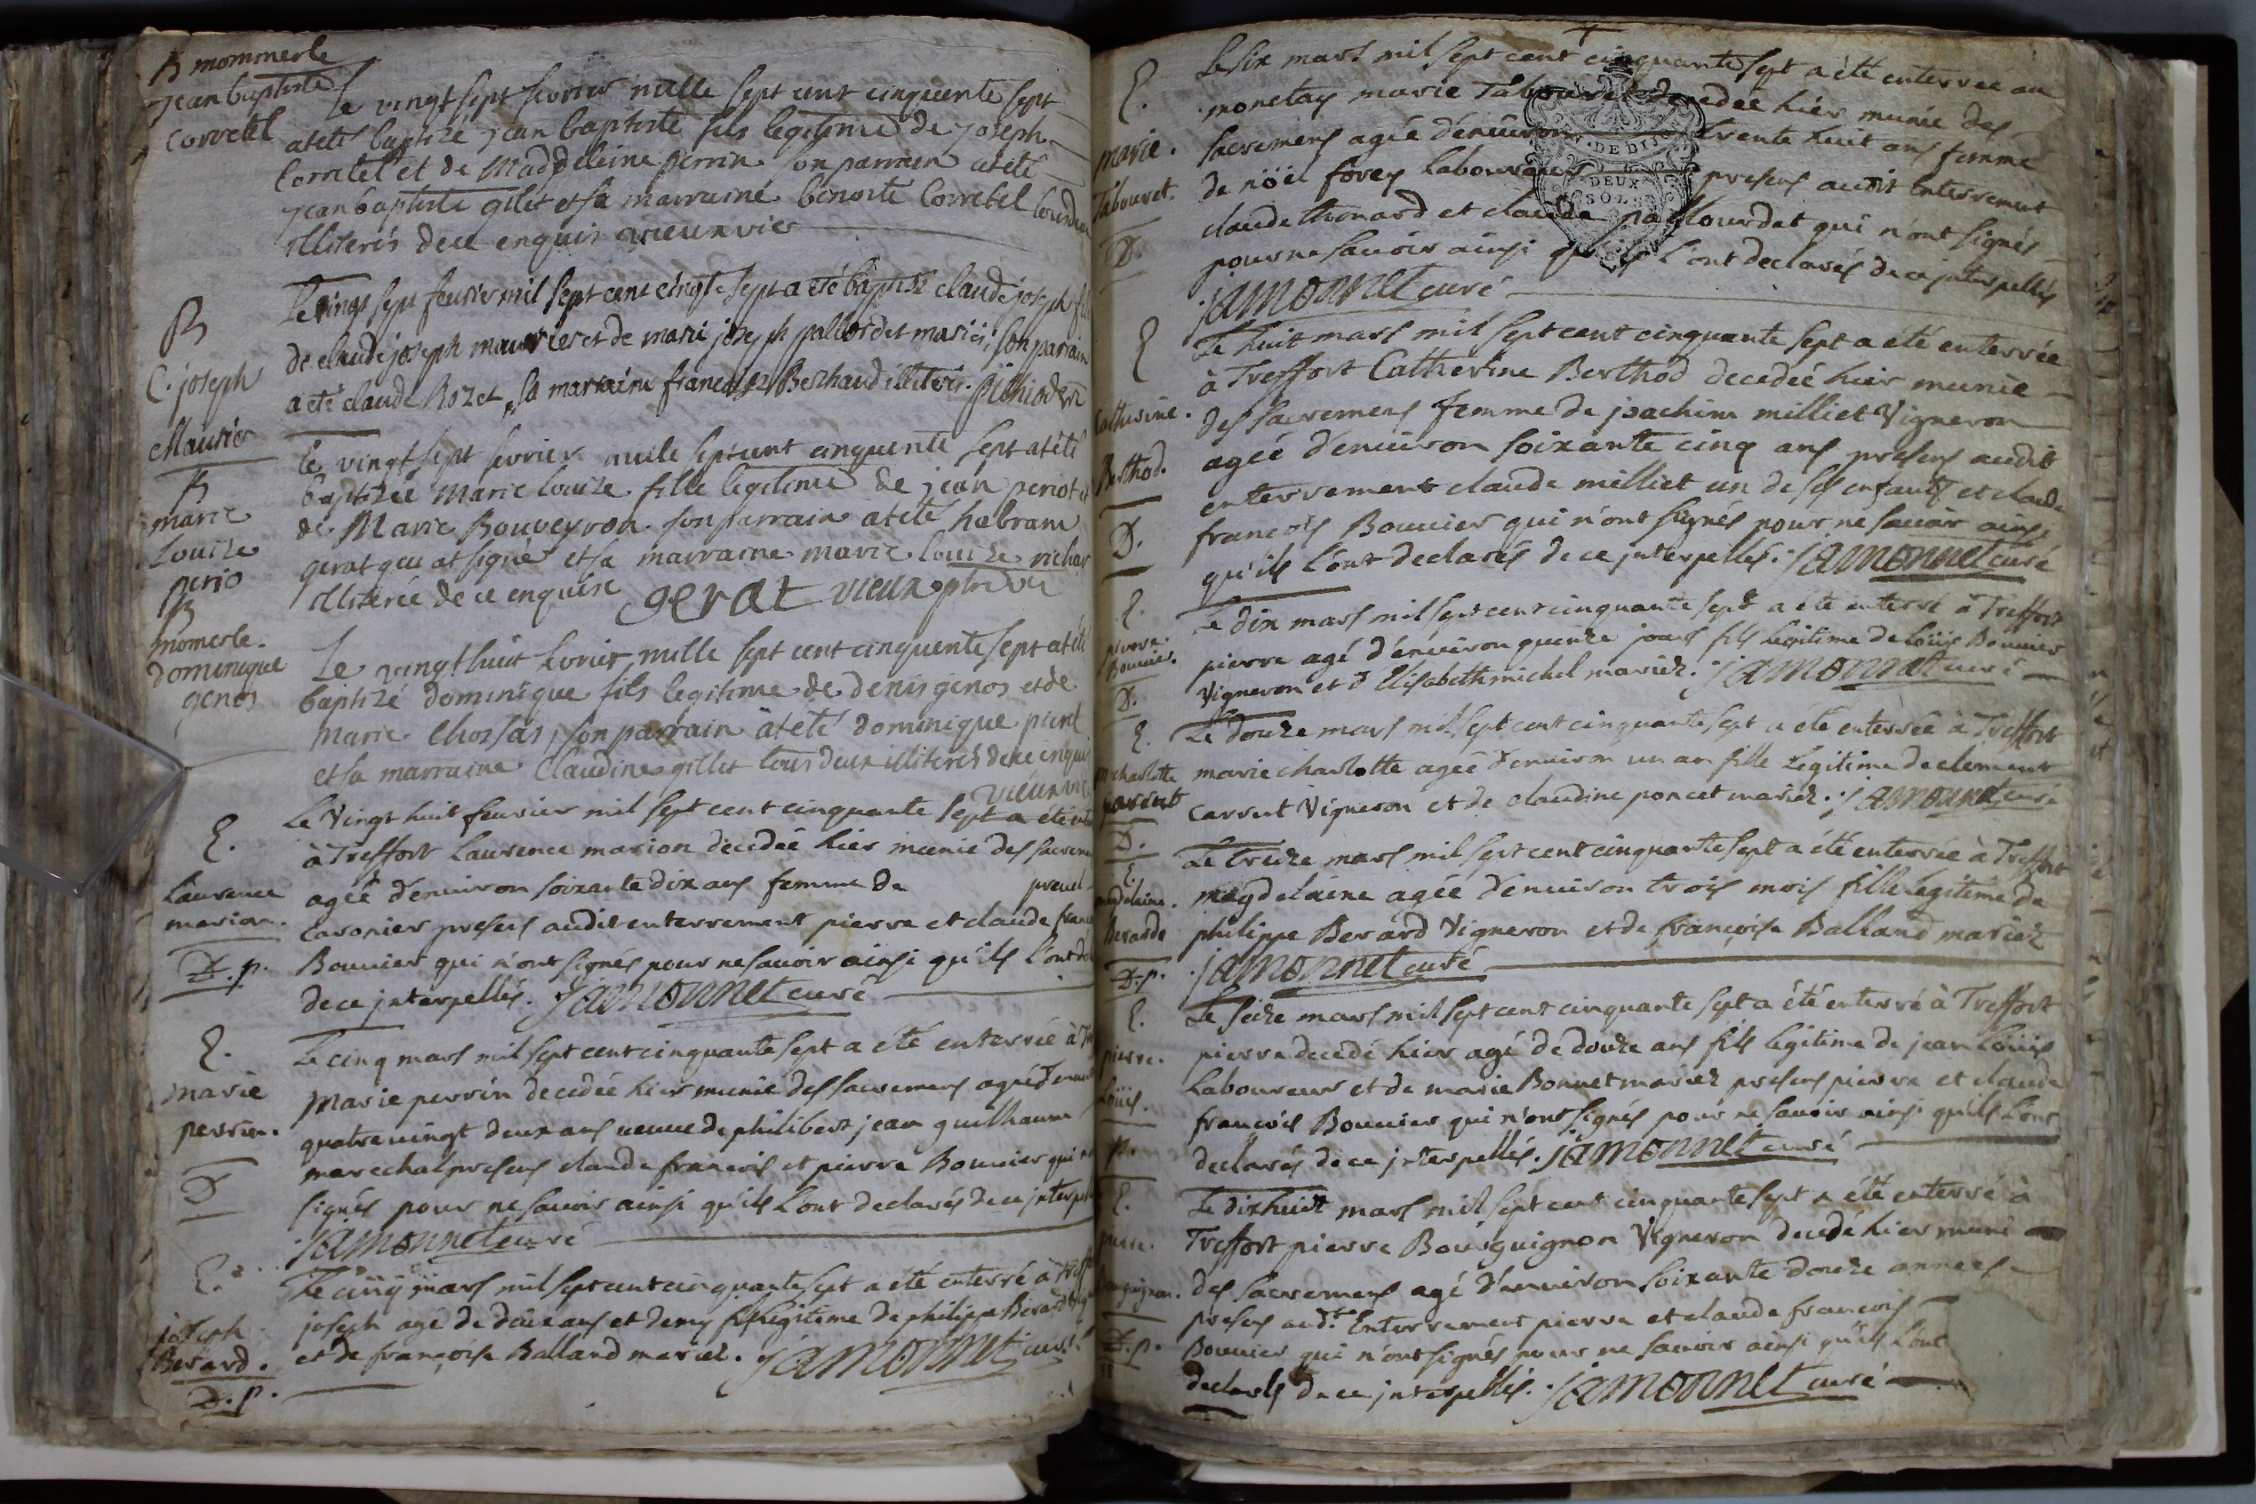 B mommerle
jean baptiste
corretel
le vingt sept fevrier mille sept cent cinquente sept
at eté baptizé jean baptiste fils legitime de joseph
Corretel et de Maddeleine perrin son parrain at eté
jean baptiste gilet et sa marraine benoite Corretel tous deux
illiterés de ce enquis vieux vic
B
C. joseph
Maurier
Le vingt sept feurier mil sept cent cinqte sept a eté baptisé claude joseph fils
de claude joseph maurier et de marie joseph pallordet mariés, son parain
a eté claude Rozet, sa marraine francoise Berthaud illiteris.
B
marie
Louize
perio
le vingt sept fevrier mille sept cent cinquente sept at eté
baptizée Marie louize fille legitime de jean periot et
de Marie Bouveyron. son parrain at eté habram
gerat qui at signé et sa marraine marie louize richar
illiterée de ce enquise gerat vieux ptre vic
B
momerle.
dominique
genos
Le vingt huit fevrier mille sept cent cinquente sept at eté
baptizé dominique fils legitime de denis genos et de
marie Chossas, son parrain at eté dominique pient
et sa marraine Claudine gillet tous deux illiterés de ce enquis
vieux vic
E.
Laurence
marion.
D.p.
Le Vingt huit feurier mil sept cent cinquante sept a eté
à Treffort Laurence marion decedée hier munie des sacremens
agée d'enuiron soixante dix ans femme de
Caronier presens audit enterrement pierre et claude francois
Bouuier qui n'ont signés pour ne sauoir ainsi qu'ils l'ont
de ce jnterpellés. jamonnet curé
E.
marie
perrin.
D
Le cinq mars mil sept cent cinquante sept a eté enterrée à
Marie perrin decedée hier munie des sacremens agée d'enuiron
quatre vingt deux ans ueuue de philibert jean guilhaume
marechal presens claude francois et pierre Bouuier qui n'ont
signés pour ne sauoir ainsi qu'ils l'ont declarés de ce jnterpellés
jamonnet curé
E.
joseph
Berard.
D.p.
Le cinq mars mil sept cent cinquante sept a eté enterré à Treffort
joseph agé de deux ans et demy fils legitime de philippe Berard
et de françoise Balland mariez. jamonnet curé
E.
marie.
Tabouret.
D.
Le six mars mil sept cent cinquante sept a été enterrée au
monetay marie Tabouret decedée hier munie des
sacremens agée d'enuiron trente huit ans femme
de noël forey laboureur presens audit enterrement
claude thomard et claude pallourdet qui n'ont signés
pour ne sauoir ainsi qu'ils l'ont declarés de ce jnterpellés
jamonnet curé
DE DIJ
DEUX
SOLS
E
Catherine.
Berthod.
D.
Le huit mars mil sept cent cinquante sept a été enterrée
à Treffort Catherine Berthod decedée hier munie
des sacremens femme de joachim milliet Vigneron
agée d'enuiron soixante cinq ans presens audit
enterrement claude milliet un de ses enfants et claude
francois Bouuier qui n'ont signés pour ne sauoir ainsi
qu'ils l'ont declarés de ce jnterpellés. jamonnet curé
E.
pierre.
Bouuier.
D.
Le dix mars mil sept cent cinquante sept a été enterré à Treffort
pierre agé d'enuiron quinze jours fils legitime de Loüis Bouuier
Vigneron et d'Elisabeth michel mariez. jamonnet curé
E.
m charlotte
carrut
D.
Le douze mars mil sept cent cinquante sept a été enterrée à Treffort
marie charlotte agée d'enuiron un an fille Legitime de clement
carrut Vigneron et de claudine poncet mariez. jamonnet curé
E.
madelaine.
Berarde
D.p.
Le treize mars mil sept cent cinquante sept a été enterrée à Treffort
magdelaine agée d'enuiron trois mois fille legitime de
philippe Berard Vigneron et de françoise Balland mariez
jamonnet curé
E.
pierre.
Loüis.
p.
Le seize mars mil sept cent cinquante sept a été enterré à Treffort
pierre decedé hier agé de douze ans fils legitime de jean Loüis
Laboureur et de marie Bonnet mariez presens pierre et claude
francois Bouuier qui n'ont signés pour ne sauoir ainsi qu'ils l'ont
declarés de ce jnterpellés. jamonnet curé
E.
pierre.
Bourguignon.
D.p.
Le dixhuit mars mil sept cent cinquante sept a été enterré à
Treffort pierre Bourguignon Vigneron decedé hier muni
des sacremens agé d'enuiron soixante douze années
presens aud.t Enterrement pierre et claude francois
Bouuier qui n'ont signés pour ne sauoir ainsi qu'ils l'ont
declarés de ce jnterpellés. jamonnet curé